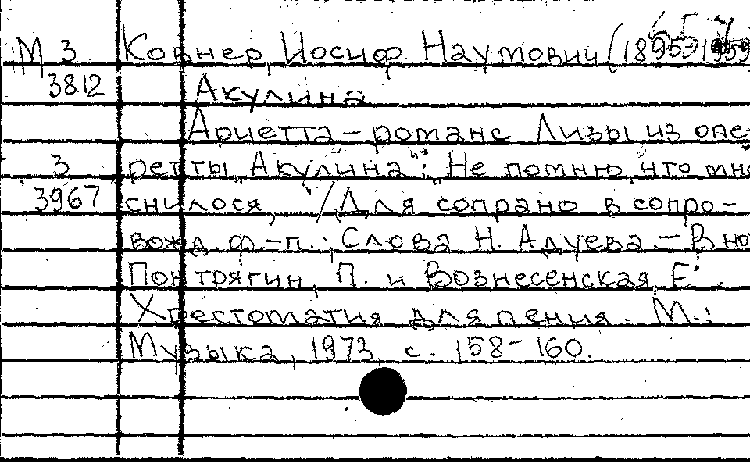 М 3 Ковнер, Иосиф Наумович (1895-1959
3812 Акулина
Ариетта-романс Лизы из опе
3 ретты „Акулина": „Не помню, что мне
3967 снилося, ..."/Для сопрано в сопро-
вожд. ф.-п.; Слова Н. Адуева.- В кн
Понтрягин, П. и Вознесенская, Е.
Хрестоматия для пения. М.:
Музыка, 1973, с. 158-160.